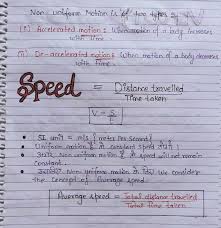 Non - uniform Motion is of two types :-
(i) Accelerated motion : When motion of a body increases
with time.
(ii) De-accelerated motion : When motion of a body decreases
with time.
Speed = Distance travelled
Time taken
V = S
SI unit = m/s (meter per second)
Uniform motion में constant speed
Non uniform motion में speed will not remain
constant.
Non uniform motion के लिए We consider
the concept of Average speed
Average speed = Total distance travelled
Total time taken